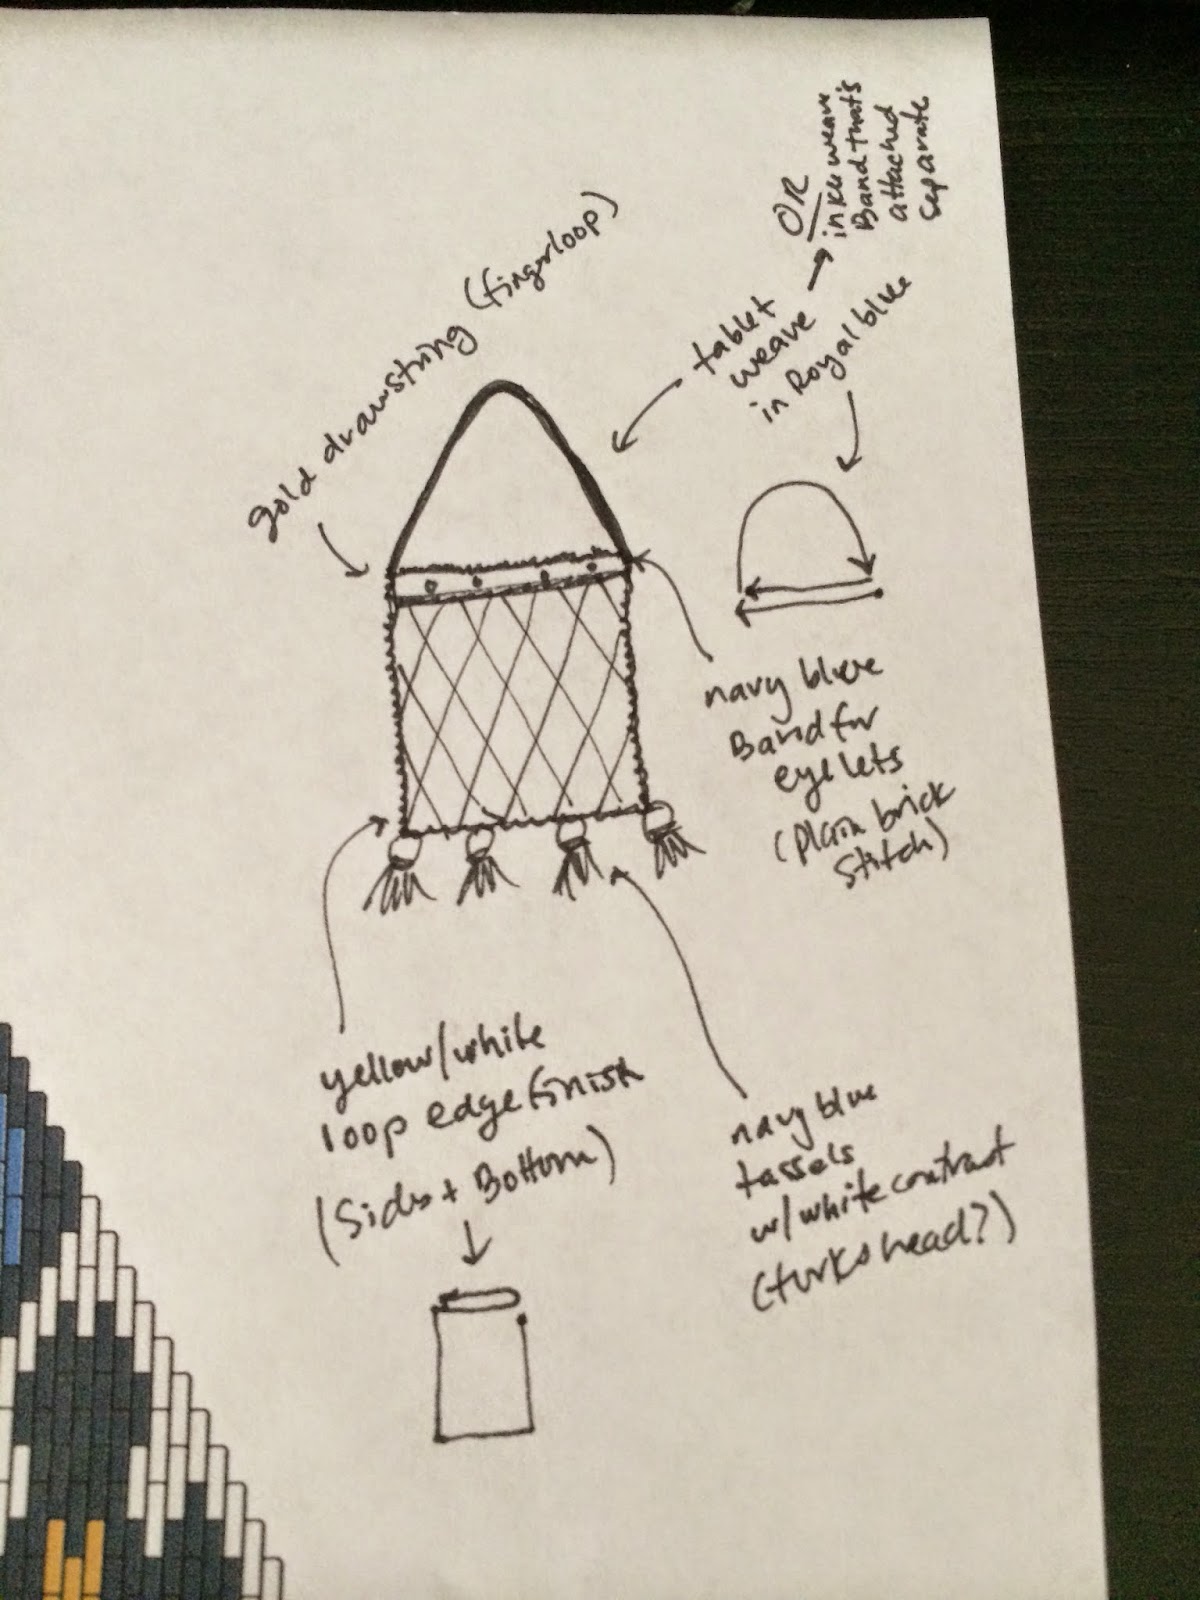 OR
inkle weave
Band that's
attached
separate
gold drawstring (fingerloop)
tablet
weave
in Royal blue
navy blue
Band for
eyelets
(plain brick
stitch)
yellow/white
loop edge finish
(Sides + Bottom)
navy blue
tassels
w/ white contrast
(turks head?)